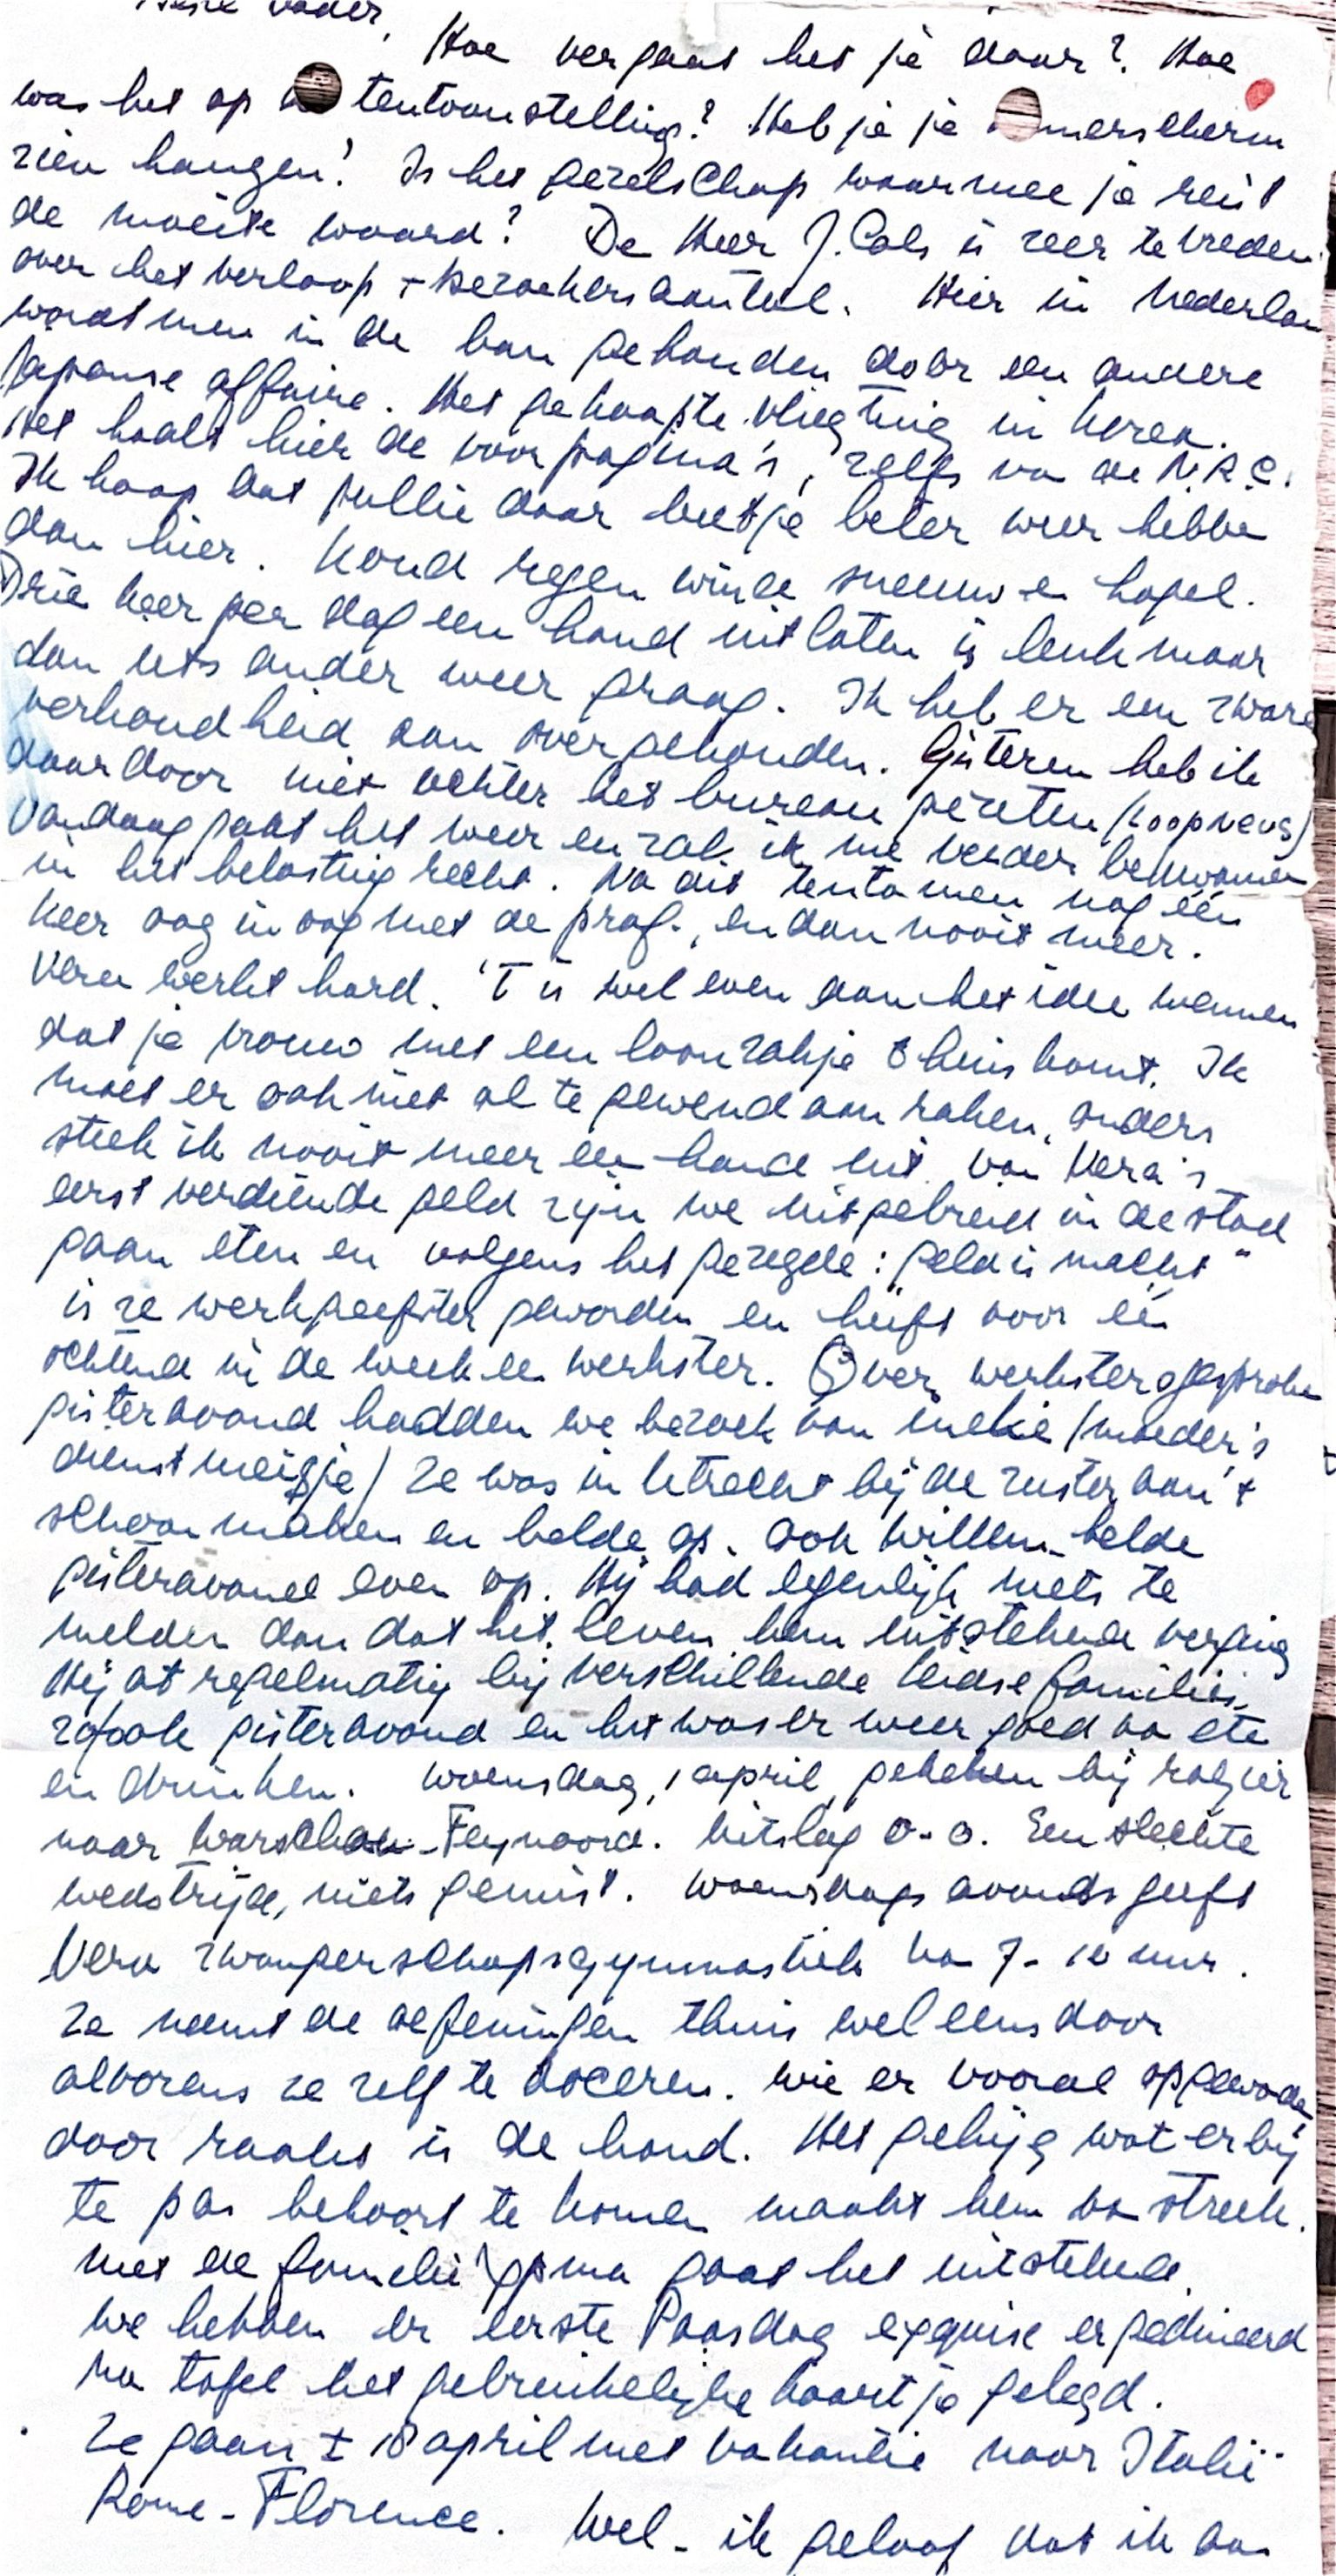 vader,
Hoe vergaat het je daar? Hoe
was het op tentoonstelling? Heb je je kamerscherm
zien hangen? Is het gezelschap waarmee je reist
de moeite waard? De Heer J. Cals is zeer tevreden
over het verloop + bezoekersaantal. Hier in Nederlan
wordt men in de ban gehouden door een andere
Japanse affaire. Het gekaapte vliegtuig in Korea.
Het haalt hier de voorpagina's, zelfs van de N.R.C.
Ik hoop dat jullie daar beetje beter weer hebben
dan hier. Koud regen winde sneeuw en hagel.
Drie keer per dag een hond uitlaten is leuk maar
dan iets ander weer graag. Ik heb er een zware
verkoudheid aan overgehouden. Gisteren heb ik
daardoor niet achter het bureau gezeten (loopneus)
Vandaag gaat het weer en zal ik me verder bekwamen
in het belastingrecht. Na dit tentamen nog één
keer oog in oog met de prof., en dan nooit meer.
Vera werkt hard. 'T is wel even aan het idee wennen
dat je vrouw met een loonzakje thuis komt. Ik
moet er ook niet al te gewend aan raken, anders
steek ik nooit meer een hand uit. Van Vera's
eerst verdiende geld zijn we uitgebreid in de stad
gaan eten en volgens het gezegde: geld is macht"
is ze werkgeefster geworden en heeft voor één
ochtend in de week een werkster. Over werkster gesproken
gisteravond hadden we bezoek van Ineke (moeder's
dienstmeisje) Ze was in Utrecht bij de zuster aan 't
schoonmaken en belde op. Ook Willem belde
gisteravond even op. Hij had eigenlijk niets te
melden dan dat het leven hem uitstekend verging
Hij at regelmatig bij verschillende Leidse families,
zo ook gisteravond en het was er weer goed van eten
en drinken. Woensdag, 1 april, gekeken bij Rogier
naar Warschau-Feynoord. Uitslag 0-0. Een slechte
wedstrijd, niets gemist. Woensdags avonds geeft
Vera zwangerschapsgymnastiek van 7-10 uur.
Ze neemt de oefeningen thuis wel eens door
alvorens ze zelf te doceren. Wie er vooral opgewonden
door raakt is de hond. Het gehijg wat erbij
te pas behoort te komen maakt hem van streek.
Met de familie Ypma gaat het uitstekend.
We hebben er eerste Paasdag exquise er gedineerd
na tafel het gebruikelijke kaartje gelegd.
Ze gaan ± 18 april met vakantie naar Italië
Rome-Florence. Wel - ik geloof dat ik aan